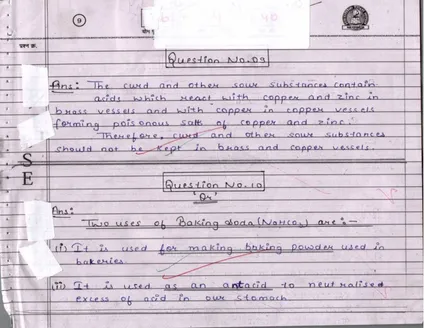 9
प्रश्न क्र.
Question No. 09
Ans: The curd and other sour substances contain
acids which react with copper and zinc in
brass vessels and with copper in copper vessels
forming poisonous salts of copper and zinc.
Therefore, curd and other sour substances
should not be kept in brass and copper vessels.
S
E
Question No. 10
'Or'
Ans:
Two uses of Baking Soda (NaHCO₃) are :-
(i) It is used for making baking powder used in
bakeries.
(ii) It is used as an antacid to neutralised
excess of acid in our stomach.